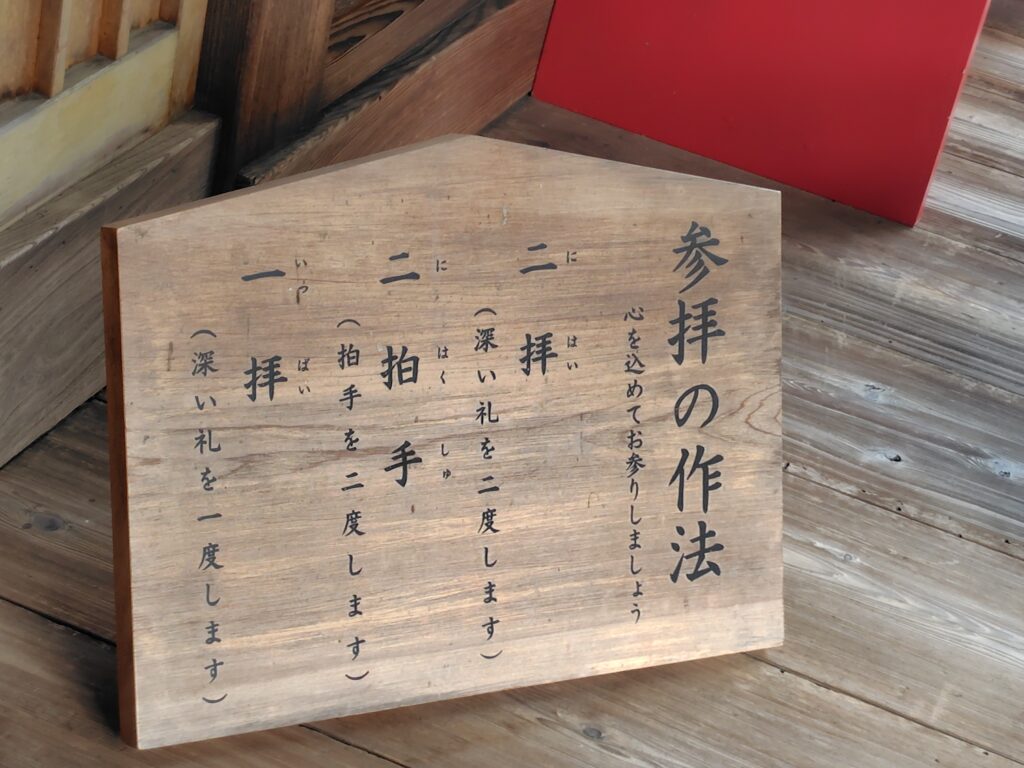 参拝の作法
心を込めてお参りしましょう
二拝
にはい
（深い礼を二度します）
二拍手
にはくしゅ
（拍手を二度します）
一拝
いつぱい
（深い礼を一度します）